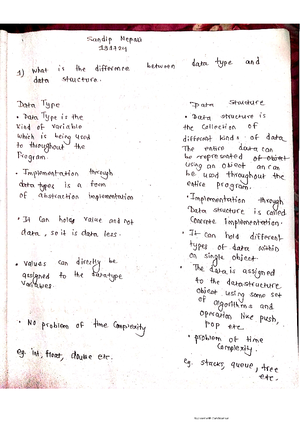 Sandip Nepali
191724
1) What is the difference between data type and
data structure.
Data Type
• Data Type is the
kind of variable
which is being used
to throughout the
Program.
• Implementation through
data types is a form
of abstraction implementation
• It can holds value and not
data, so it is data less.
• values can directly be
assigned to the datatype
variables.
• No problem of time complexity
eg. int, float, double etc.
Data Structure
• Data structure is
the collection of
different kinds of data.
The entire data can
be represented of object
using an object and can
be used throughout the
entire program.
• Implementation through
Data structure is called
Concrete implementation.
• It can hold different
types of data within
on single object
• The data is assigned
to the datastructure
object using some set
of algorithms and
operation like push,
pop etc
• problem of time
complexity.
eg. stacks, queue, tree
etc.